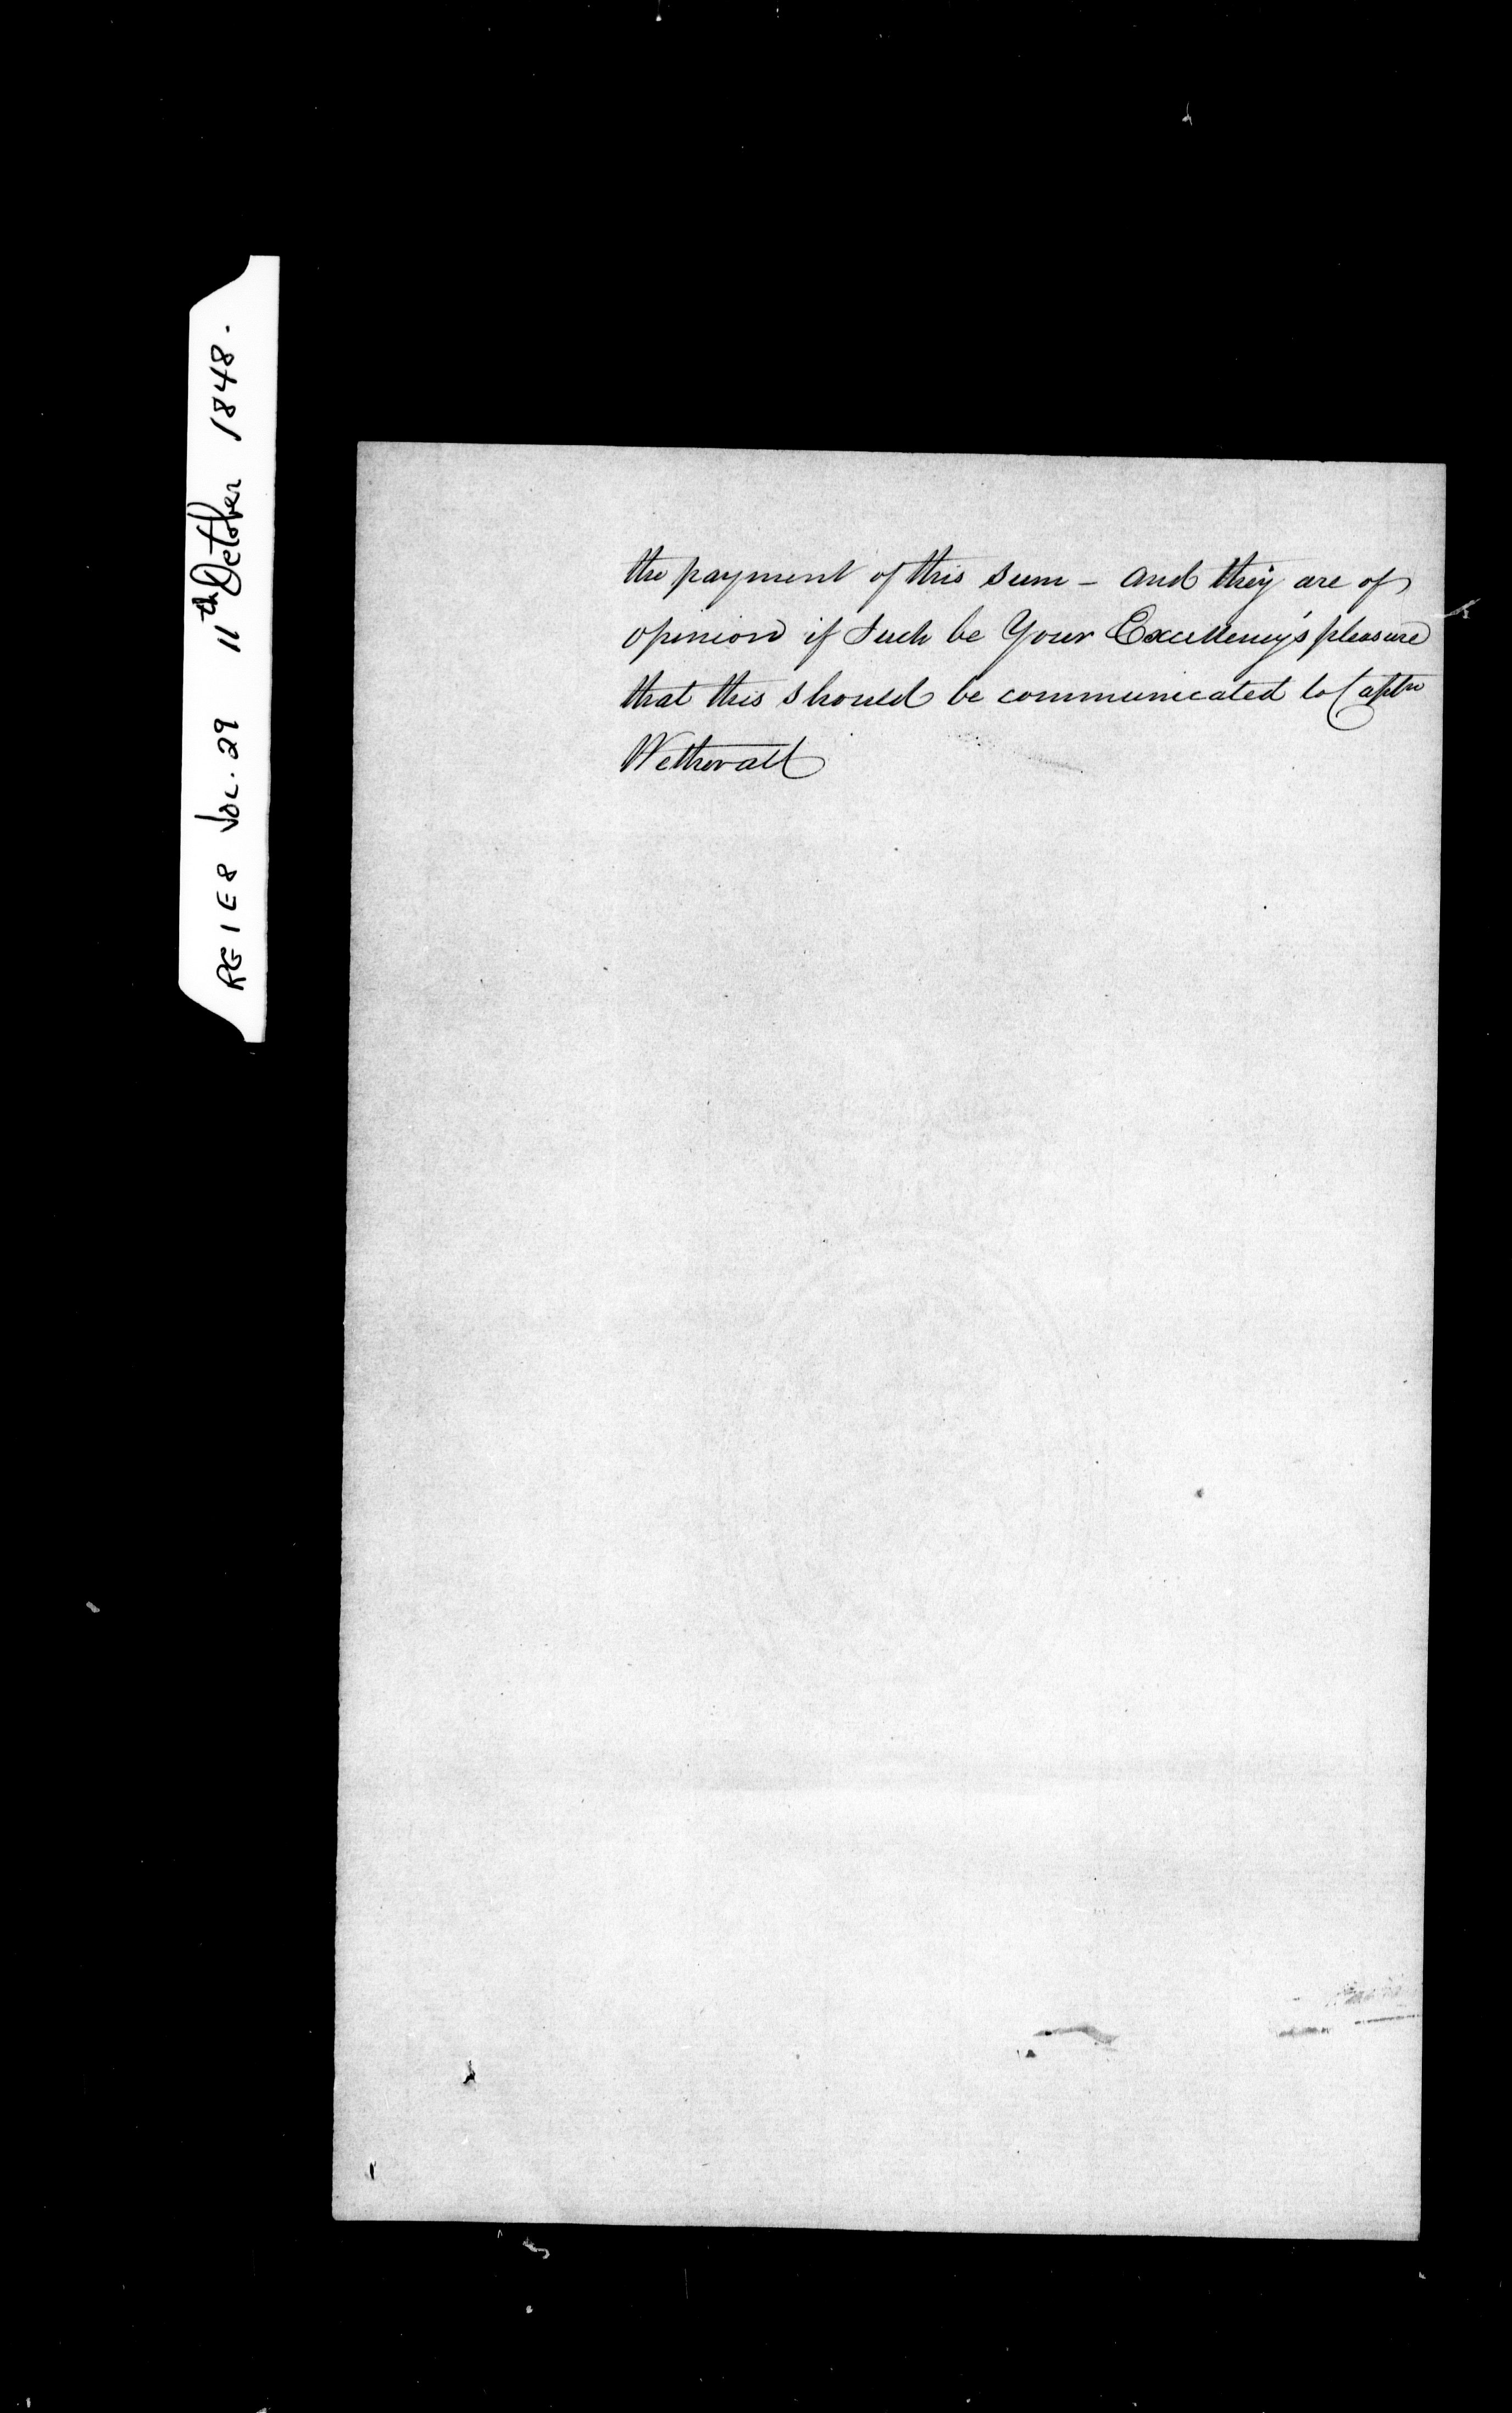 RG 1 E8 VOL. 29 11th October 1848.
the payment of this sum - and they are of
opinion if such be Your Excellency's pleasure
that this should be communicated to Captn
Wetherall